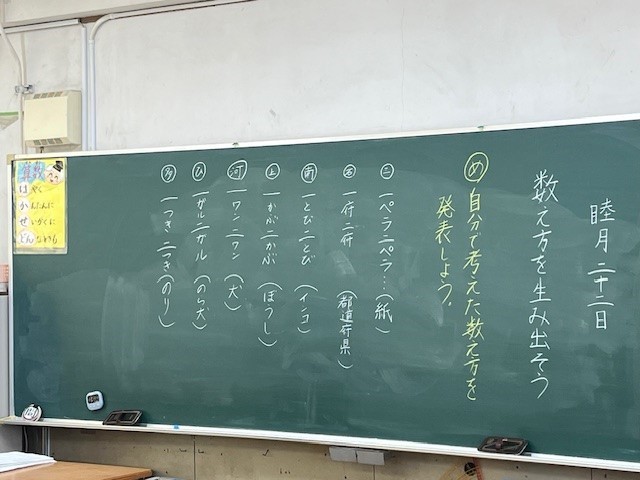 睦月 二十二日
数え方を生み出そう
め 自分で考えた数え方を
発表しよう。
二 一ペラ二ペラ…(紙)
名 一府二府 (都道府県)
南 一とび二とび (インコ)
上 一かぶ二かぶ (ぼうし)
河 一ワン二ワン (犬)
ひ 一ガル二ガル (のら犬)
多 一つき二つき (のり)
算数
はやく
かんたんに
せいかくに
どんなときも